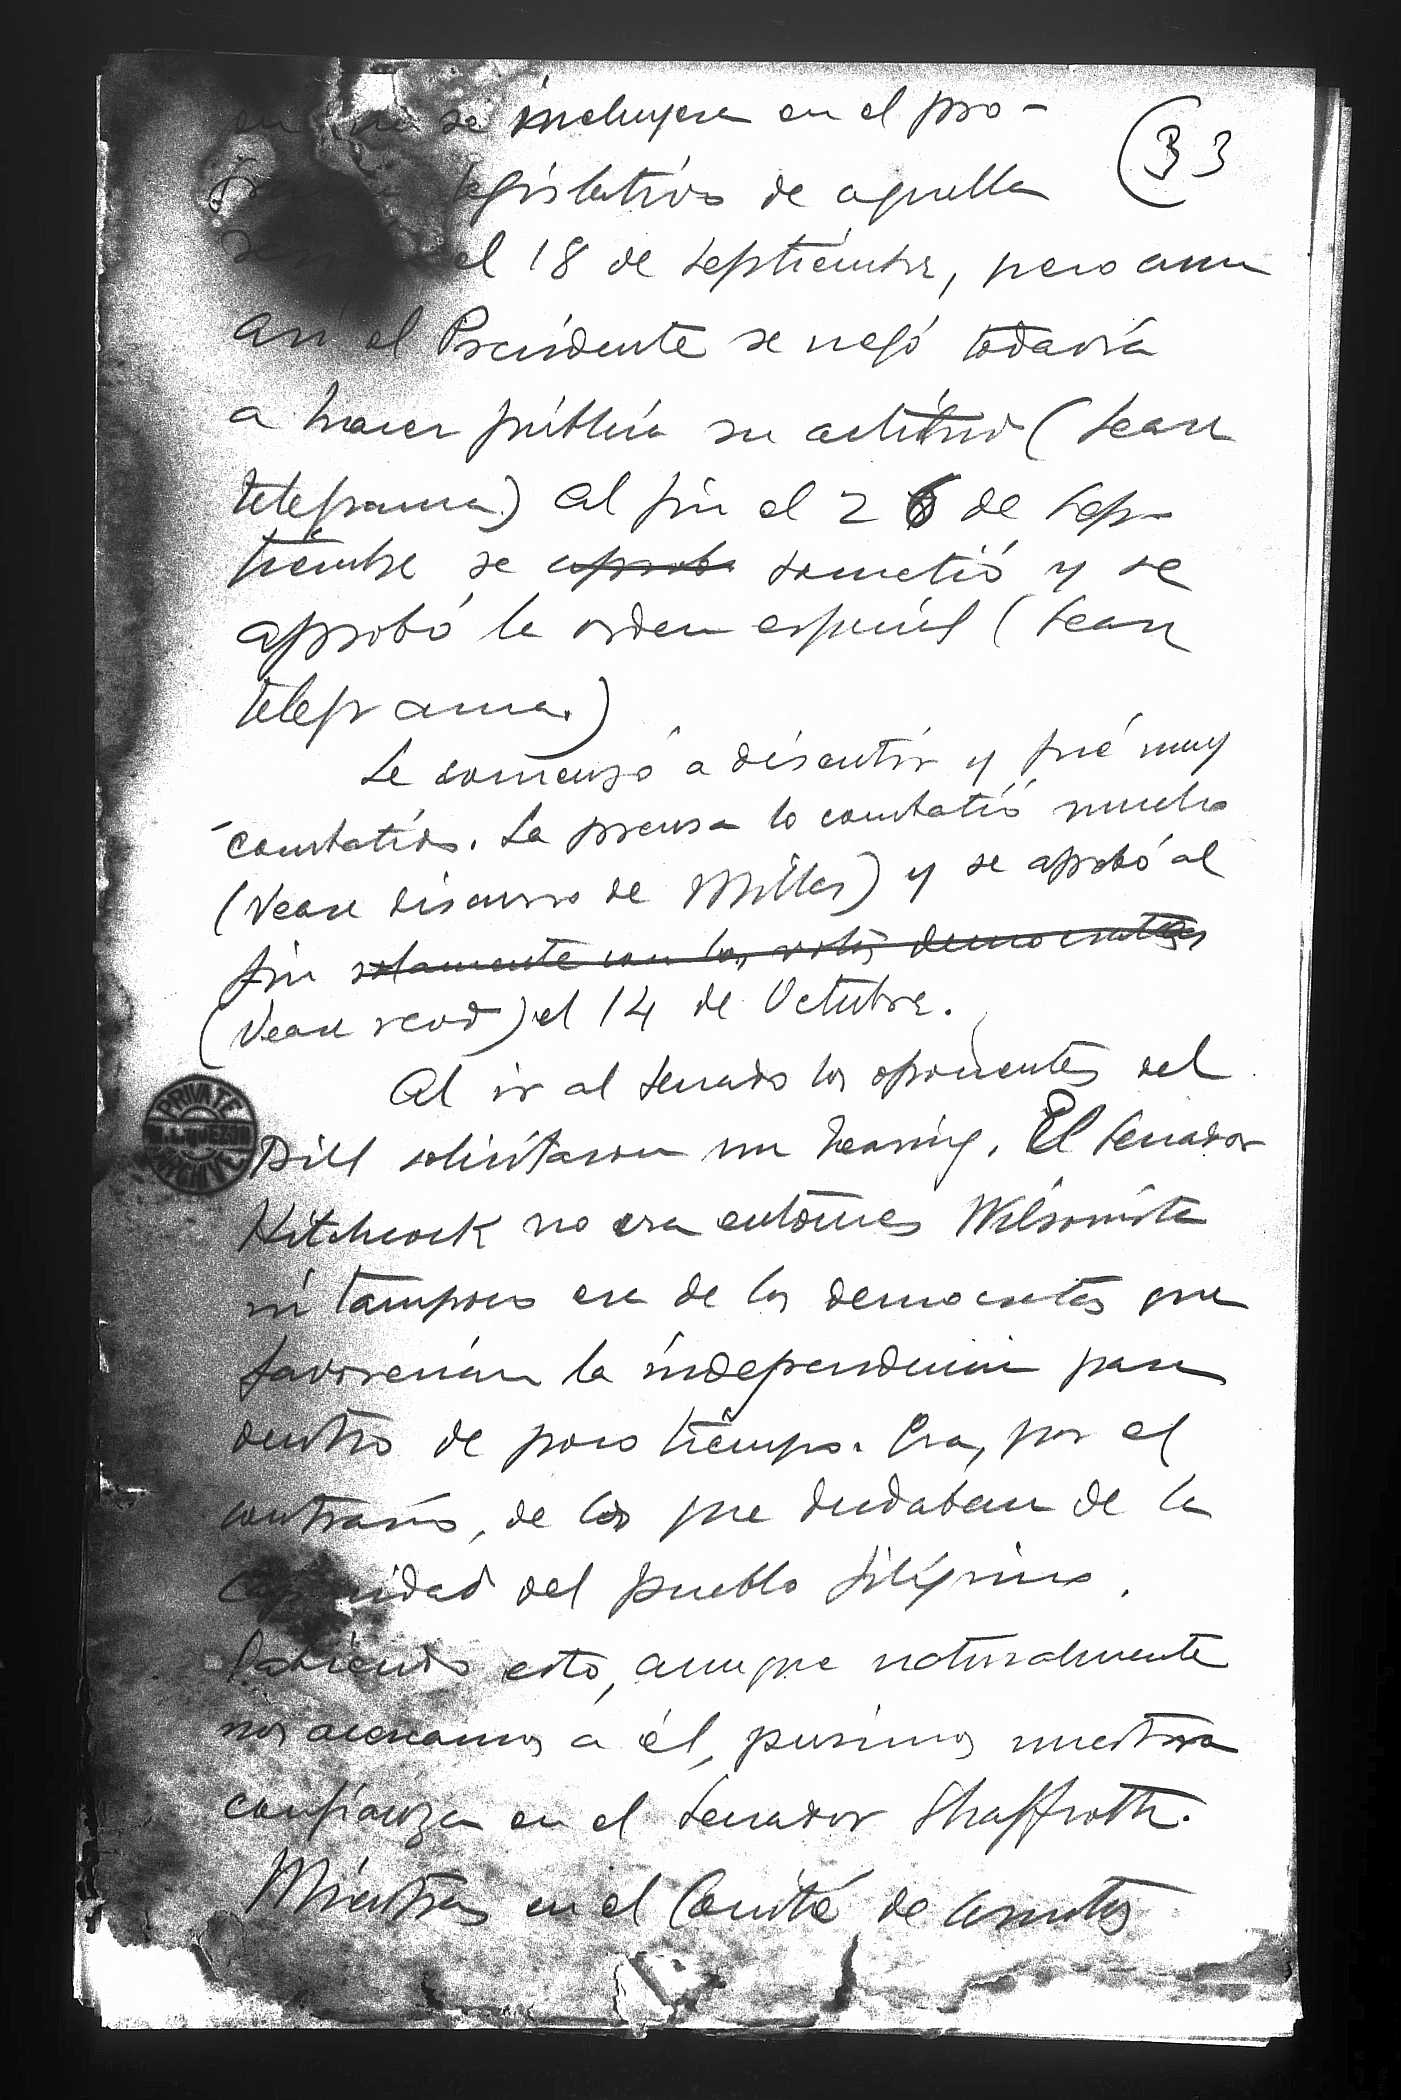 en que se incluyera en el pro-
33
legislativo de aquella
el 18 de septiembre, pero aun
asi el Presidente se negó todavía
a hacer pública su actitud (Vease
telegrama) Al fin el 26 de Sep-
tiembre se aprobó sometió y se
aprobó la orden especial (Vease
telegrama.)
Se comenzó a discutir y fué muy
combatido. La prensa lo combatió mucho
(Vease discurso de Miller) y se aprobó al
fin solamente con los votos democratas
(Vease record) el 14 de Octubre.
Al ir al Senado los oponentes del
Bill solicitaron un hearing. El Senador
Hitchcock no era entonces Wilsonista
ni tampoco era de los democratas que
favorecían la independencia para
dentro de poco tiempo. Era, por el
contrario, de los que dudaban de la
capacidad del pueblo filipino.
Sabiendo esto, aunque naturalmente
nos acercamos a él, pusimos nuestra
confianza en el Senador Shaffroth.
Mientras en el Comité de Asuntos
PRIVATE
M.L. QUEZON
ARCHIVE